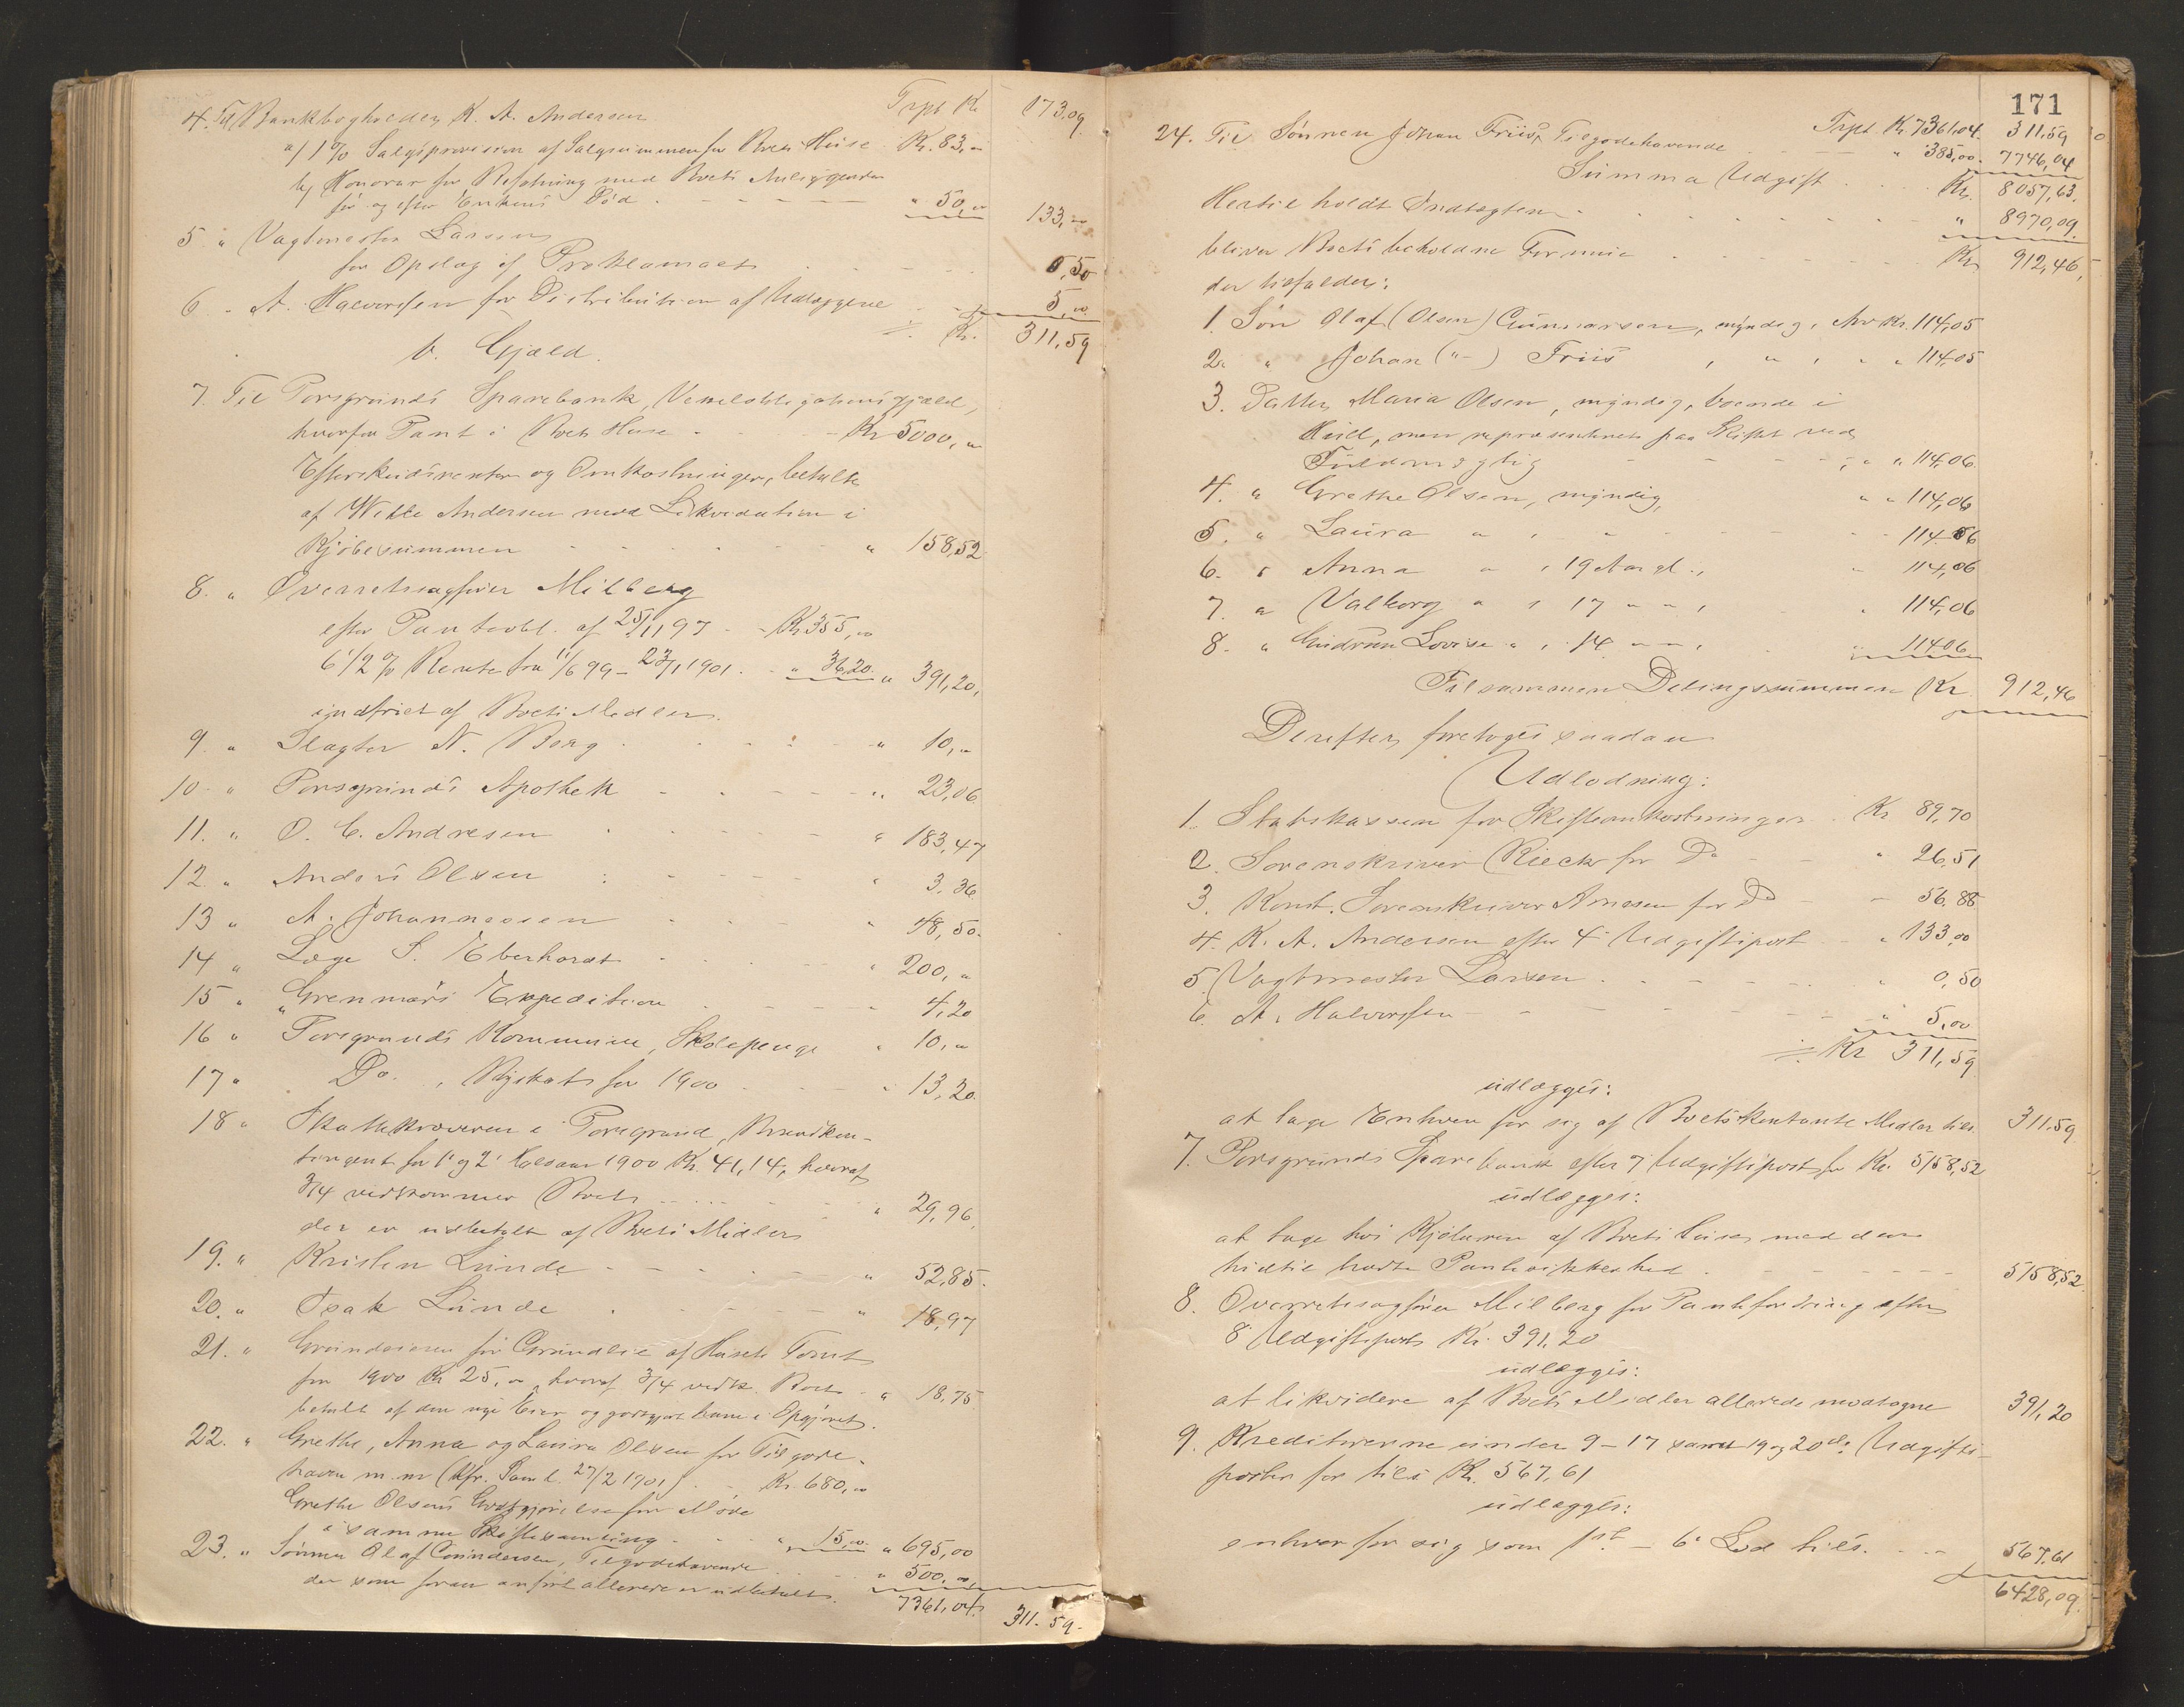 Trspt. Kr. 173,09
4. Til Bankbogholder K. A. Andersen
a/ 1 % Salgsprovision af Salgssummen for Boets Huse Kr. 83,00
b/ Honorar for Befatning med Boets Anliggender
før og efter Enkens Død " 50,00 133,00
5. " Vagtmester Larsen
for Opslag af Proklamaet 0,50
6 " A. Halvorsen for Distribution af Udlæggene 5,00
÷ Kr. 311,59
b. Gjæld.
7. Til Porsgrunds Sparebank, Vexelobligationsgjæld,
hvorfor Pant i Boets Huse - Kr 5000, "
Efterskudsrenter og Omkostninger, betalte
af Wille Andersen mod Likvidation i
Kjøbesummen " 158,52
8. " Overretssagfører Milberg
efter Pantobl. af 25/11 97 - Kr 355,00
6 1/2 % Rente fra 11/6 99 - 23/1 1901 " 36,20 " 391,20.
indfriet af Boets Midler.
9 " Slagter N. Borg " 10, "
10 " Porsgrunds Apothek " 23,06
11. " O. C. Andresen " 183,47
12. " Anders Olsen " 3,36
13 " A. Johannessen " 48,50.
14 " Læge S. Eberhardt " 200, "
15 " "Grenmars" Expedition " 4,20
16 " Porsgrunds Kommune, Skolepenge " 10, "
17 " Do. , Byskat for 1900 " 13,20.
18 " Skatteopkræveren i Porsgrund, Brandkon-
tingent for 1' og 2' Halvaar 1900 Kr. 41,14, hvoraf
3/4 vedkommer Boet " 29,96.
der er udbetalt af Boets Midler
19. " Kristen Lunde " 52,85.
20. " Isak Lunde " 18,97
21. " Grundeieren for Grundleie af Husets Tomt
for 1900 Kr 25,00, hvoraf 3/4 vedk. Boet " 18,75
betalt af den nye Eier og godtgjort ham i Opgjøret.
22. " Grethe, Anna og Laura Olsen for Tilgode-
havende m. m (Kfr. Saml. 27/2 1901) - Kr. 680,00
Grethe Olsens Godtgjørelse for Møde
i samme Skiftesamling " 15,00 " 695,00
23. " Sønnen Olaf Gundersen, Tilgodehavende " 500,00
der som foran anført allerede er udbetalt.
7361,04. 311.59.
171
Trspt. Kr. 7361,04. 311,59
24. Til Sønnen Johan Friis, Tilgodehavende " 385,00. 7746,04
Summa Udgift Kr. 8057,63.
Hertil holdt Indtægten " 8970,09.
bliver Boets beholdne Formue Kr. 912,46,
der tilfalder:
1. Søn Olaf (Olsen) Gunnarsen, myndig, Arv Kr. 114,05
2. " Johan ("-) Friis , " , " " 114,05
3. Datter Maria Olsen, myndig, boende i
Hull, men repræsenteret paa Skiftet ved
Fuldmægtig , " " 114,06.
4. " Grethe Olsen, myndig, " " 114,06
5. " Laura " , " " " 114,06
6. " Anna " , 19 Aar gl., " 114,06
7. " Valborg " , 17 " " , " 114,06
8. " Gudrun Lovise " , 14 " " , " 114,06
Tilsammen Delingssummen Kr. 912,46
Derefter foretoges saadan
Udlodning:
1. Statskassen for Skifteomkostninger Kr 89,70
2. Sorenskriver Rieck for Do " 26,51
3. Konst. Sorenskriver Arnesen for Do - 56.88
4. K. A. Andersen efter 4' Udgiftspost " 133,00
5. Vagtmester Larsen " 0,50
6. A. Halvorsen " 5,00
÷ Kr 311,59
udlægges:
at tage Enhver for sig af Boets kontante Midler tils. 311.59.
7. Porsgrunds Sparebank efter 7' Udgiftspost for Kr. 5158,52
udlægges:
at tage hos Kjøberen af Boets Huse med den
hidtil havte Pantesikkerhed 5158,52.
8. Overretssagfører Milberg for Pantefordring efter
8' Udgiftspost Kr. 391,20
udlægges:
at likvidere af Boets Midler allerede modtagne 391,20
9. Kreditorerne under 9 - 17 samt 19 og 20de Udgifts-
poster for tils. Kr. 567,61
udlægges:
enhver for sig som 1ste - 6' Lod tils. 567,61
6428,09.